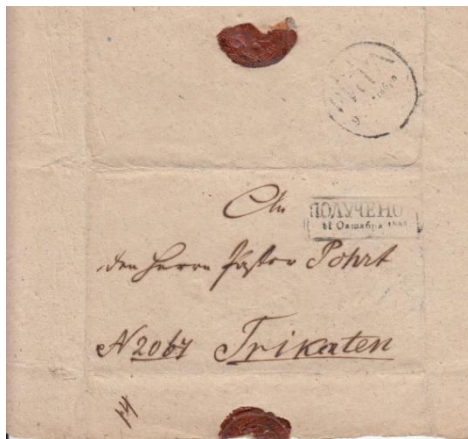 An
ПОЛУЧЕНО
Октября
den Herrn Pastor Pohrt
N 2067 Trikaten